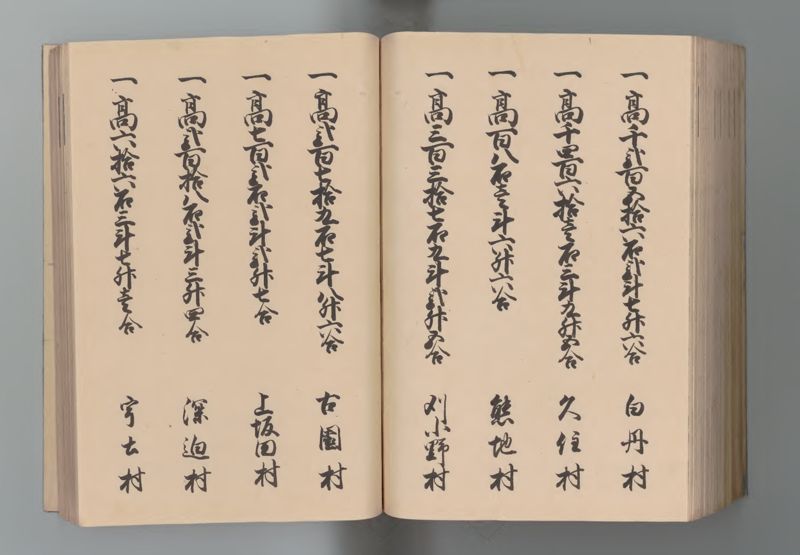 一高千弐百五拾六石弐斗七升六合 白丹村
一高千四百六拾壱石三斗九升五合 久住村
一高百八石壱斗六升六合 熊地村
一高三百三拾七石九斗弐升五合 刈小野村
一高弐百七拾九石七斗八升六合 古園村
一高七百弐石弐斗弐升七合 上坂田村
一高弐百拾八石弐斗三升四合 深迫村
一高六拾六石三斗七升壱合 村